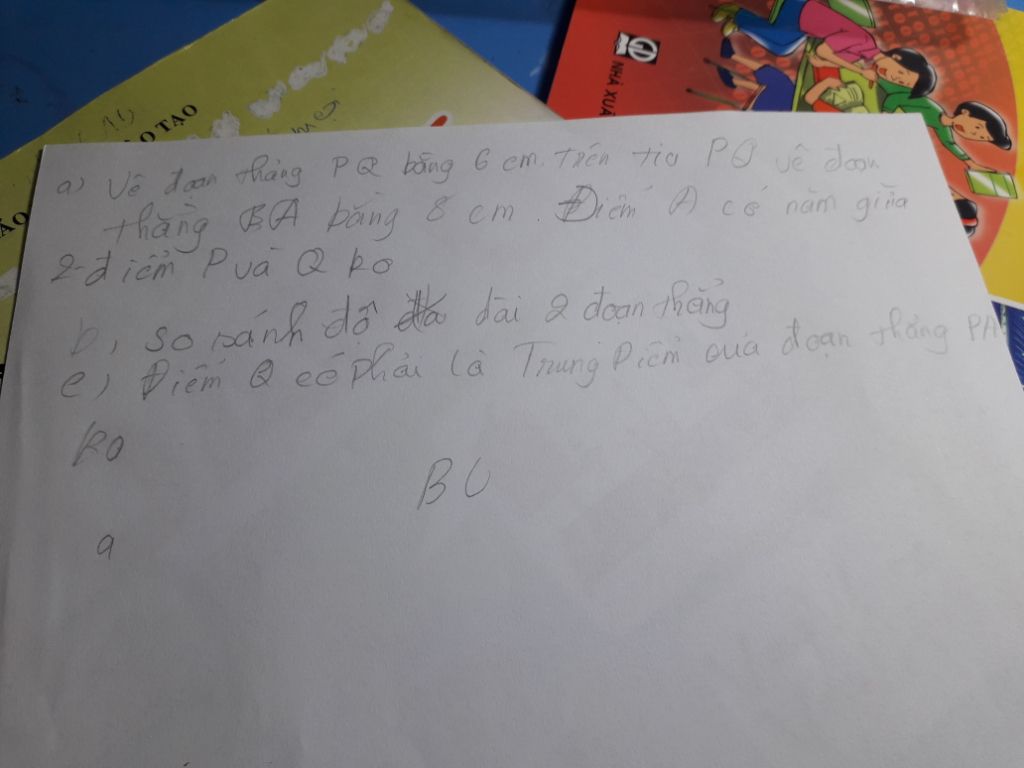 ẠO TẠO
ÁO
NHÀ XUẤ
a) Vẽ đoạn thẳng PQ bằng 6 cm. trên tia PQ vẽ đoạn
thẳng BA bằng 8 cm. Điểm A có nằm giữa
2 điểm P và Q ko
b, so sánh độ dài 2 đoạn thẳng
c) Điểm Q có phải là Trung Điểm của đoạn thẳng PA
ko
BC
a